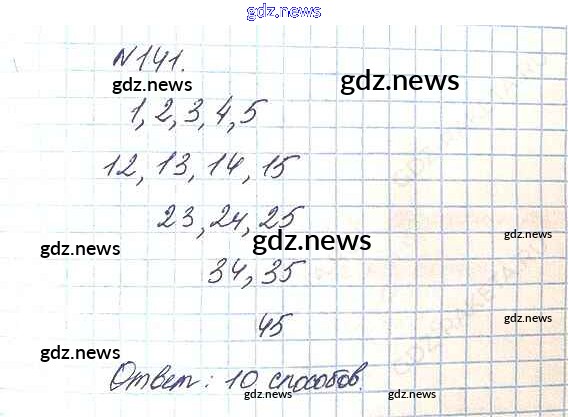 gdz.news
№141.
gdz.news
gdz.news
1, 2, 3, 4, 5
12, 13, 14, 15
23, 24, 25
gdz.news
gdz.news
gdz.news
34, 35
45
gdz.news
gdz.news
Ответ: 10 способов.
gdz.news
gdz.news